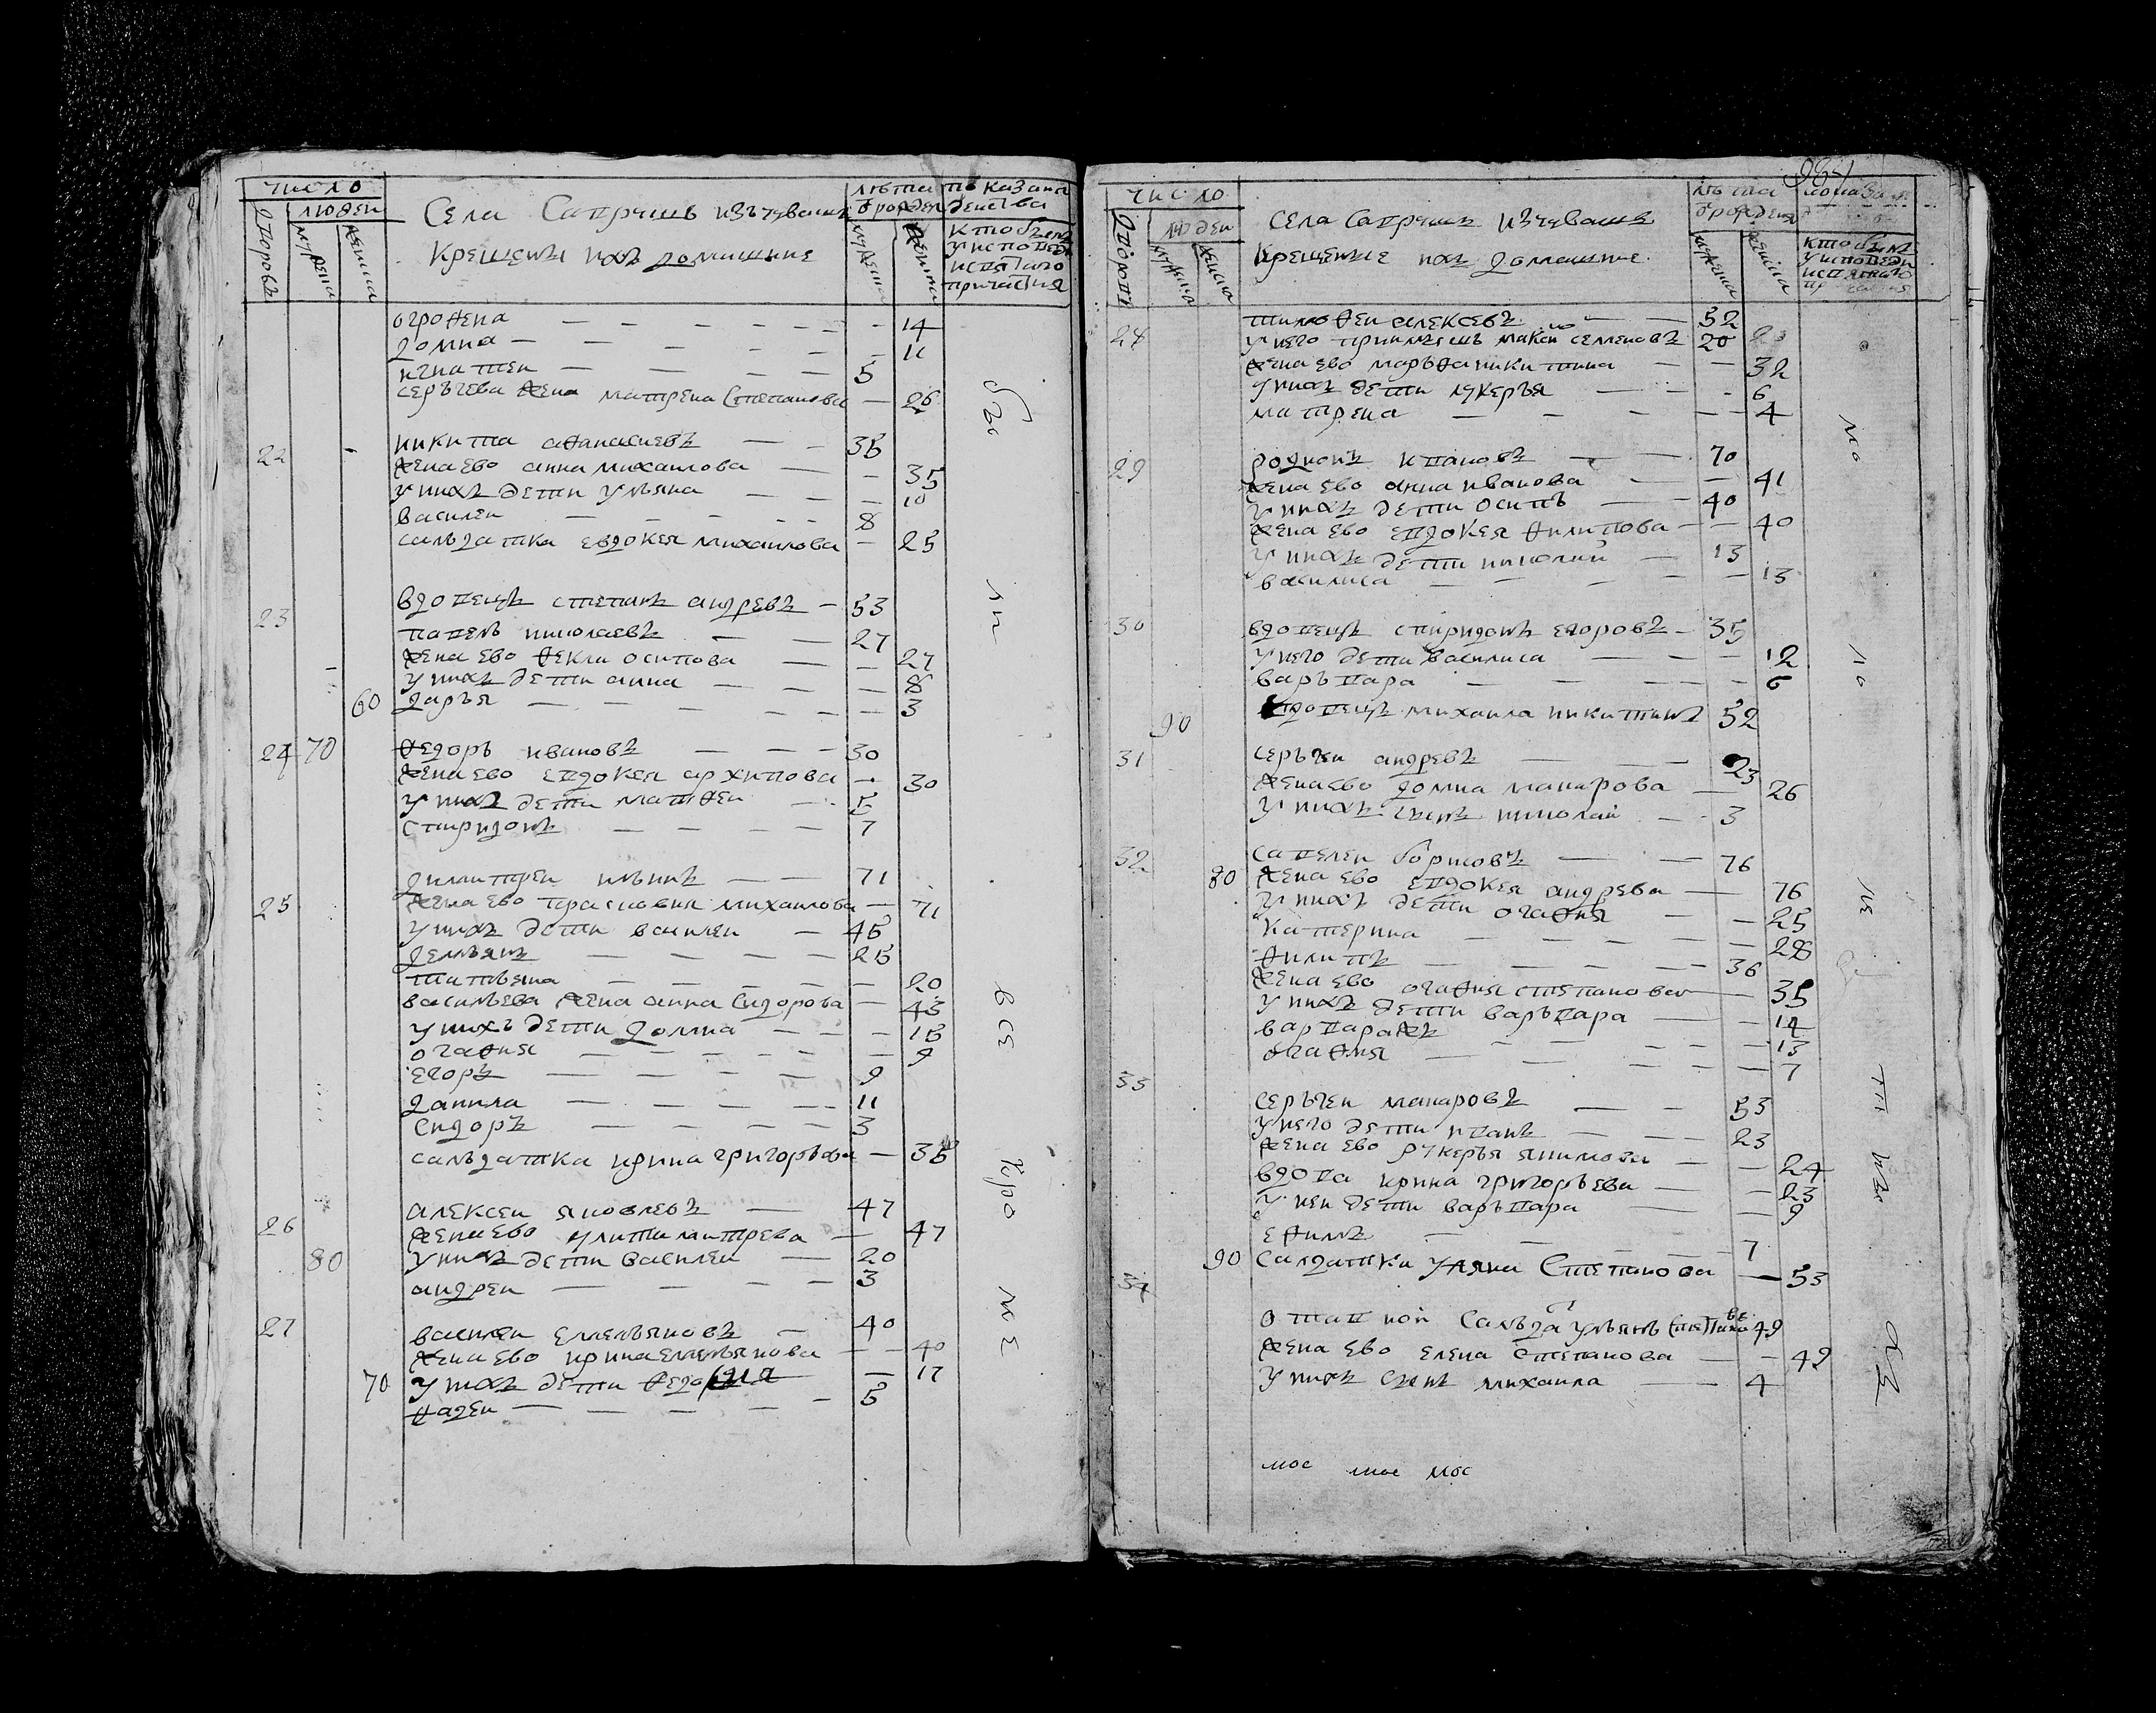 число
людеи
дворовъ
мужска
женска
Села Сапрыкъ изъ чувашъ
крещены и ихъ домашние
лѣта
от рожден
мужска
женска
показани
действа
кто былъ
у исповеди
и святаго
причастия
огрофена 14
домна 11
игнатеи 5
серьгева жена матрена степанова 26
22 никита афанасиевъ 35
жена ево анна михаилова 35
у нихъ дети ульяна 10
василеи 8
сальдатка евдокея михаилова 25
23 вдовецъ степанъ андревъ 53
павелъ николаевъ 27
жена ево фекла осипова 27
у нихъ дети анна 8
60 дарья 3
24 70 федоръ ивановъ 30
жена ево евдокея архипова 30
у нихъ дети матфеи 5
спиридонъ 7
25 димитреи ильинъ 71
жена ево прасковия михаилова 71
у нихъ дети василеи 45
демьянъ 25
татьяна 20
васильева жена анна сидорова 43
у нихъ дети домна 15
огафия 9
егоръ 9
данила 11
сидоръ 3
сальдатка ирина григорьева 35
26 алексеи яковлевъ 47
жена ево улита митрева 47
80 у нихъ дети василеи 20
андреи 3
27 василеи емельяновъ 40
жена ево ирина емельянова 40
70 у нихъ дети 17
фадеи 5
бы
ли
все
кро
ме
число
людеи
мужска
женска
села Сапрыкъ изъ чувашъ
крещеные и ихъ домашние
лѣта
от рожден
мужска
женска
кто былъ
у исповеди
и святаго
28 тимофеи алексевъ 52
у него приимышъ макси семеновъ 20
жена ево марьфа никитина 32
у нихъ дети лукерья 6
матрена 4
29 родионъ ивановъ 70
жена ево анна иванова 41
у нихъ дети осипъ 40
жена ево евдокея филипова 40
у нихъ дети николаи 13
василиса 13
30 вдовецъ спиридонъ егоровъ 35
у него дети василиса 12
варьвара 6
90 вдовецъ михаила никитинъ 52
31 серьгеи андревъ 23
жена ево домна макарова 26
у нихъ сынъ николаи 3
32 савелеи борисовъ 76
80 жена ево евдокея андрева 76
у нихъ дети огафия 25
катерина 28
филипъ 36
жена ево огафия степанова 35
у нихъ дети варьвара 14
варвара жъ 13
огафия 7
33 серьгеи макаровъ 53
у него дети иванъ 23
жена ево лукерья якимова 24
вдова ирина григорьева 23
у неи дети варьвара 9
ефимъ 7
90 салдатка уляна Степанова 53
34 отставнои сальдатъ ульянъ степановъ 49
жена ево елена степанова 42
у нихъ сынъ михаила 4
мос мос мос